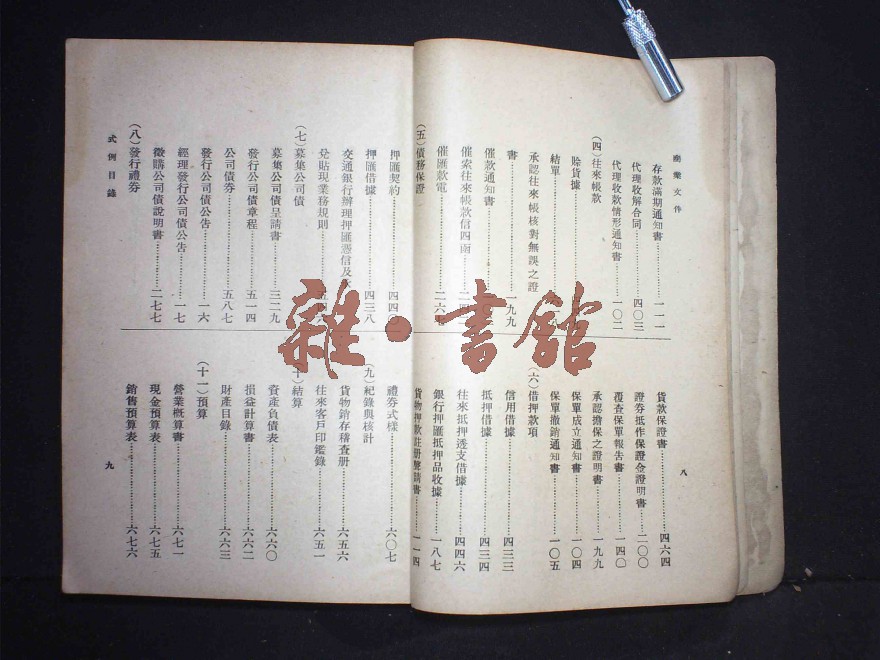 商業文件
存款滿期通知書…………一一一
代理收解合同…………四〇三
代理收款情形通知書………一〇二
(四)往來帳款
賒貨據
結單
承認往來帳核對無誤之證
書…………一九九
催款通知書
催索往來帳款信四函
催匯款電…………二六
(五)債務保證
貨款保證書…………四六四
證券抵作保證金證明書………二〇〇
覆查保單報告書…………一四〇
承認擔保之證明書…………一九九
保單成立通知書…………一〇四
保單撤銷通知書…………一〇五
(六)借押款項
信用借據…………四三三
抵押借據…………四三四
往來抵押透支借據…………四四六
銀行押匯抵押品收據………一八七
貨物押款註册聲請書………一一四
八
押匯契約…………四四
押匯借據…………四三八
交通銀行辦理押匯憑信及
兌貼現業務規則…………五四
(七)募集公司債
募集公司債呈請書…………三二九
發行公司債章程…………五一四
公司債券…………五八七
發行公司債公告…………一六
經理發行公司債公告…………一七
徵購公司債說明書…………二七七
(八)發行禮券
式例目錄
禮券式樣…………六〇七
(九)紀錄與核計
貨物銷存稽查册…………六五六
往來客戶印鑑錄…………六五一
(十)結算
資產負債表…………六六〇
損益計算書…………六六二
財產目錄…………六六三
(十一)預算
營業概算書…………六七一
現金預算表…………六七五
銷售預算表…………六七六
九
雜·書館